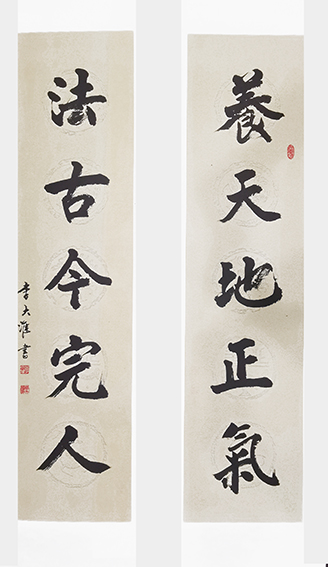 養天地正氣
法古今完人
李大淮書